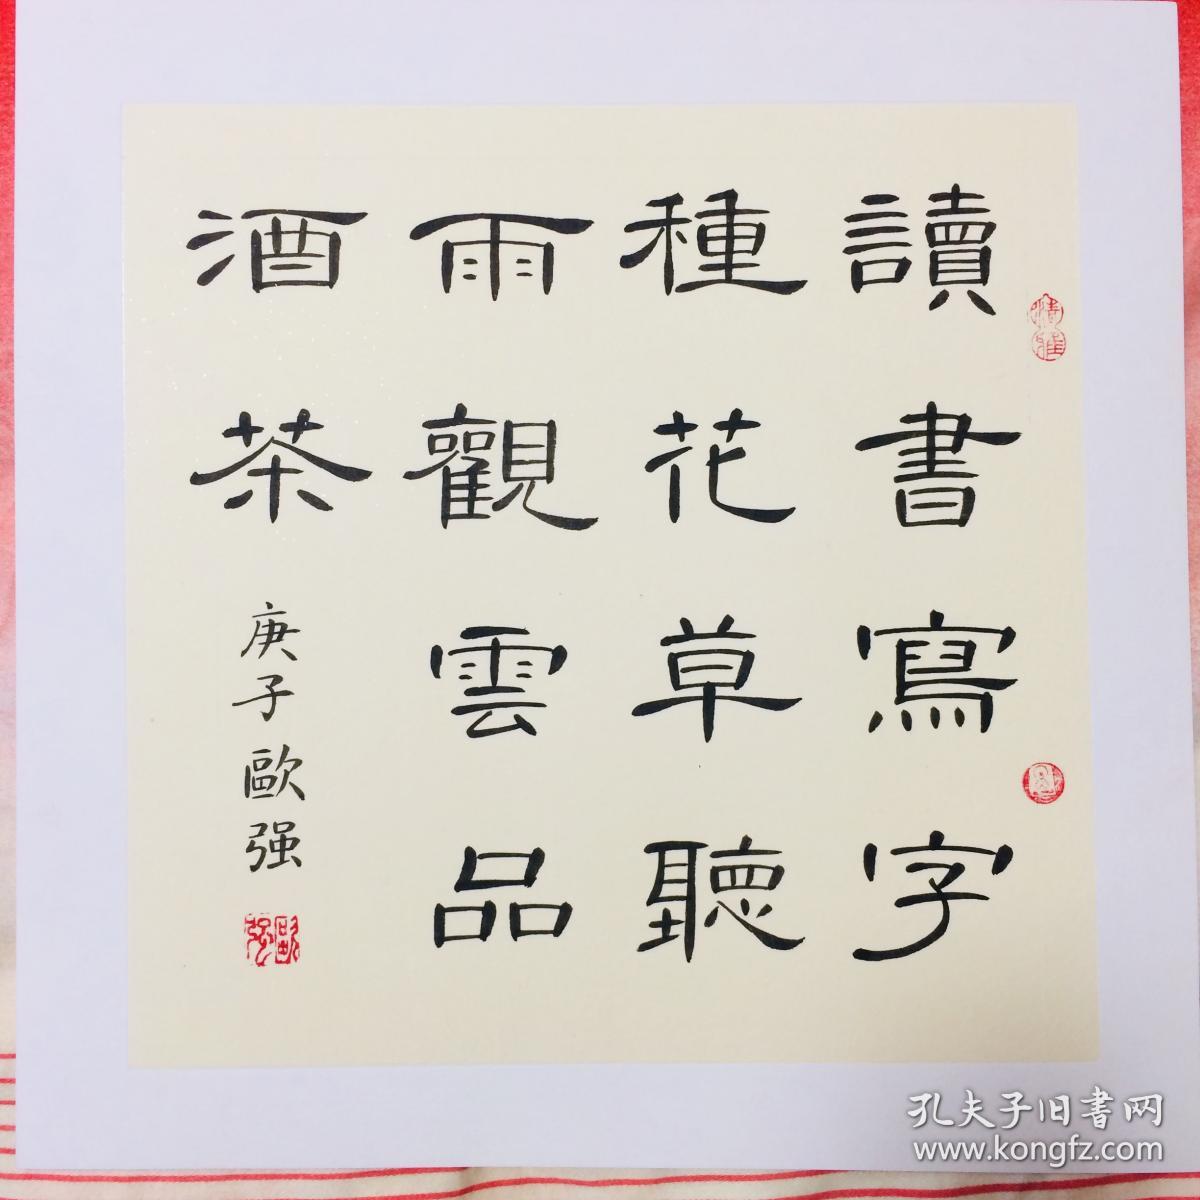 讀書寫字
種花草聽
雨觀雲品
酒茶
庚子歐强
清雅
歐强
孔夫子旧書网
www.kongfz.com